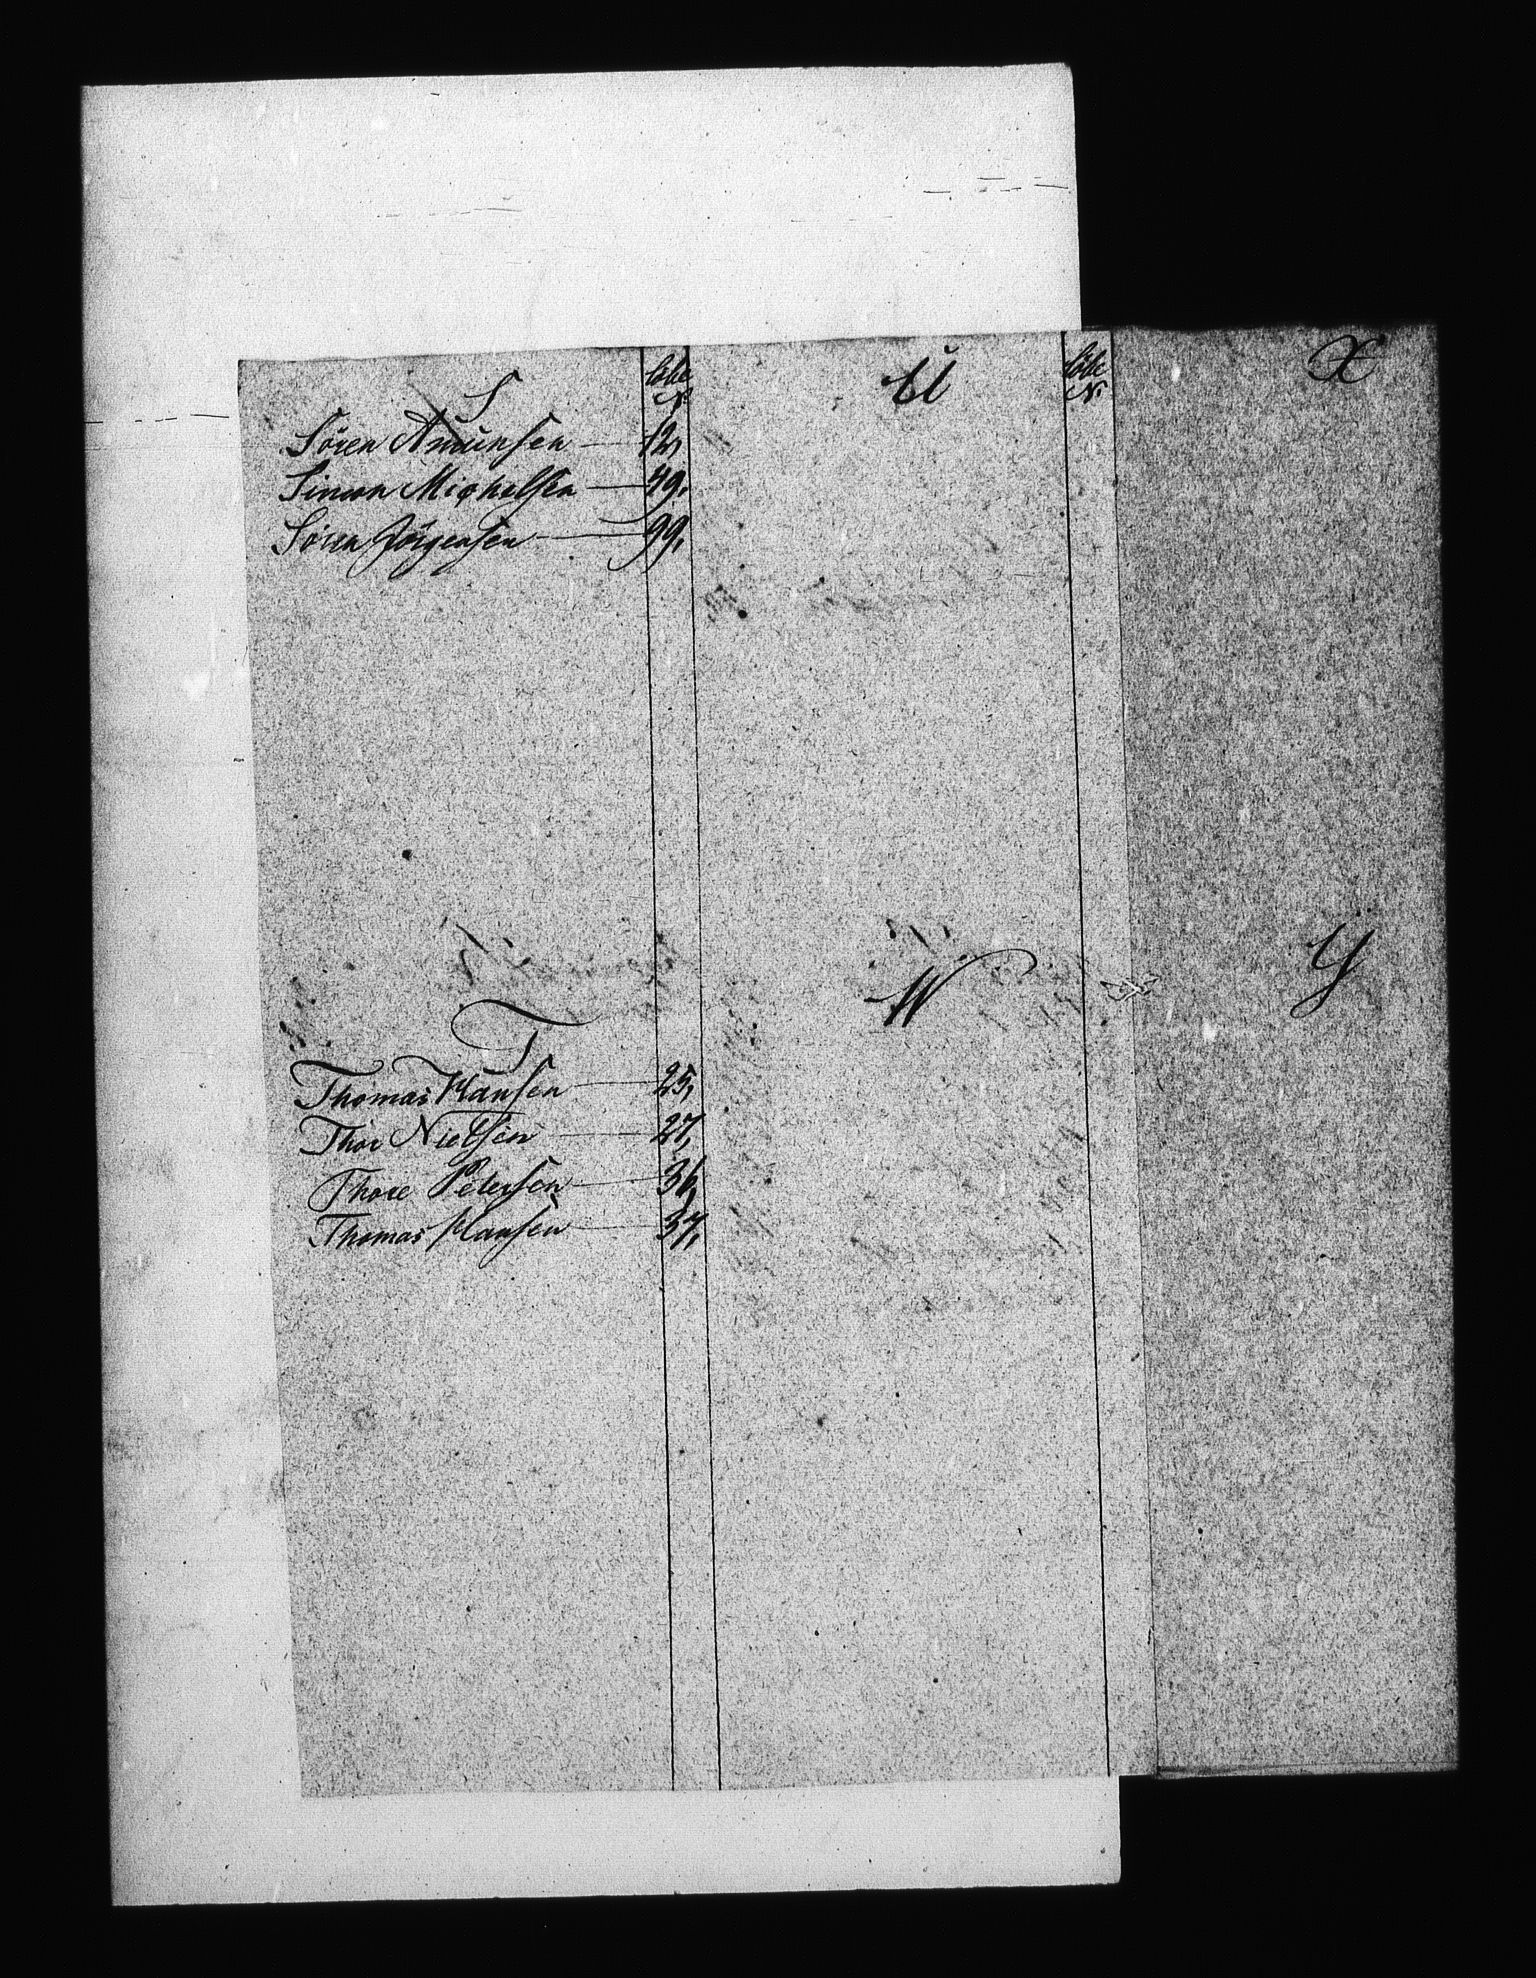 S
Löbe
No
Sören Amunsen 12,
Simon Michelsen 49,
Sören Jörgensen 99,
T
Thomas Hansen 25,
Thor Nielsen 27,
Thore Petersen 36,
Thomas Hansen 37,
U
Löbe
No
W
X
Y